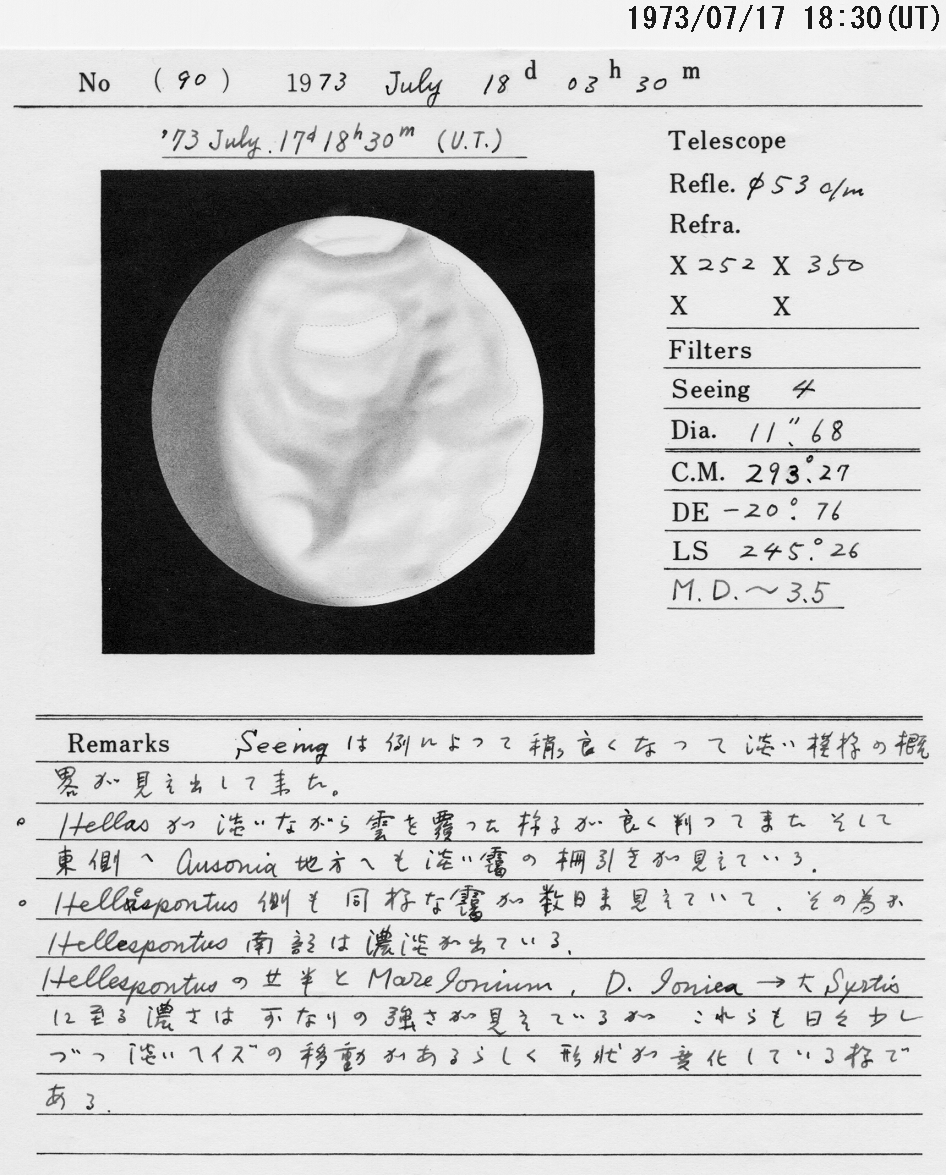 1973/07/17 18:30(UT)
No (90) 1973 July 18 d 03 h 30 m
'73 July. 17d 18h 30m (U.T.)
Telescope
Refle. φ53 c/m
Refra.
X 252 X 350
X X
Filters
Seeing 4
Dia. 11″.68
C.M. 293°.27
DE −20°.76
LS 245°.26
M.D.～3.5
Remarks Seeing は例によって稍々良くなって淡い模様の概
略が見え出して来た。
○ Hellas が淡いながら雲を覆った様子が良く判ってまた そして
東側へ Ausonia 地方へも淡い靄の棚引きが見えている.
○ Hellespontus 側も同様な靄が数日来見えていて、その為か
Hellespontus 南部は濃淡が出ている.
Hellespontus の北半と Mare Ionium, D. Ionica → 大 Syrtis
に至る濃さは可なりの強さが見えているが これらも日々少し
づつ淡いヘイズの移動があるらしく形状が変化している様で
ある.